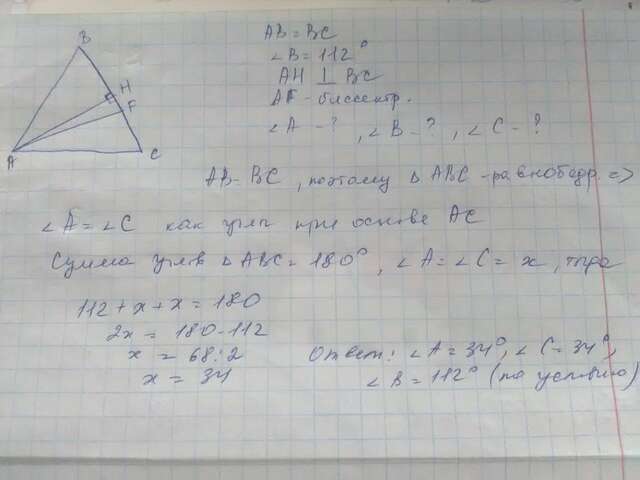 B
H
F
A
C
AB = BC
∠B = 112°
AH ⊥ BC
AF - биссектр.
∠A - ? , ∠B - ? , ∠C - ?
AB = BC , поэтому △ ABC - равнобедр. =>
∠A = ∠C как углы при основе AC
Сумма углов △ ABC = 180° , ∠A = ∠C = x , тогда
112 + x + x = 180
2x = 180 - 112
x = 68 : 2
x = 34
Ответ : ∠A = 34° , ∠C = 34° ,
∠B = 112° (по условию)